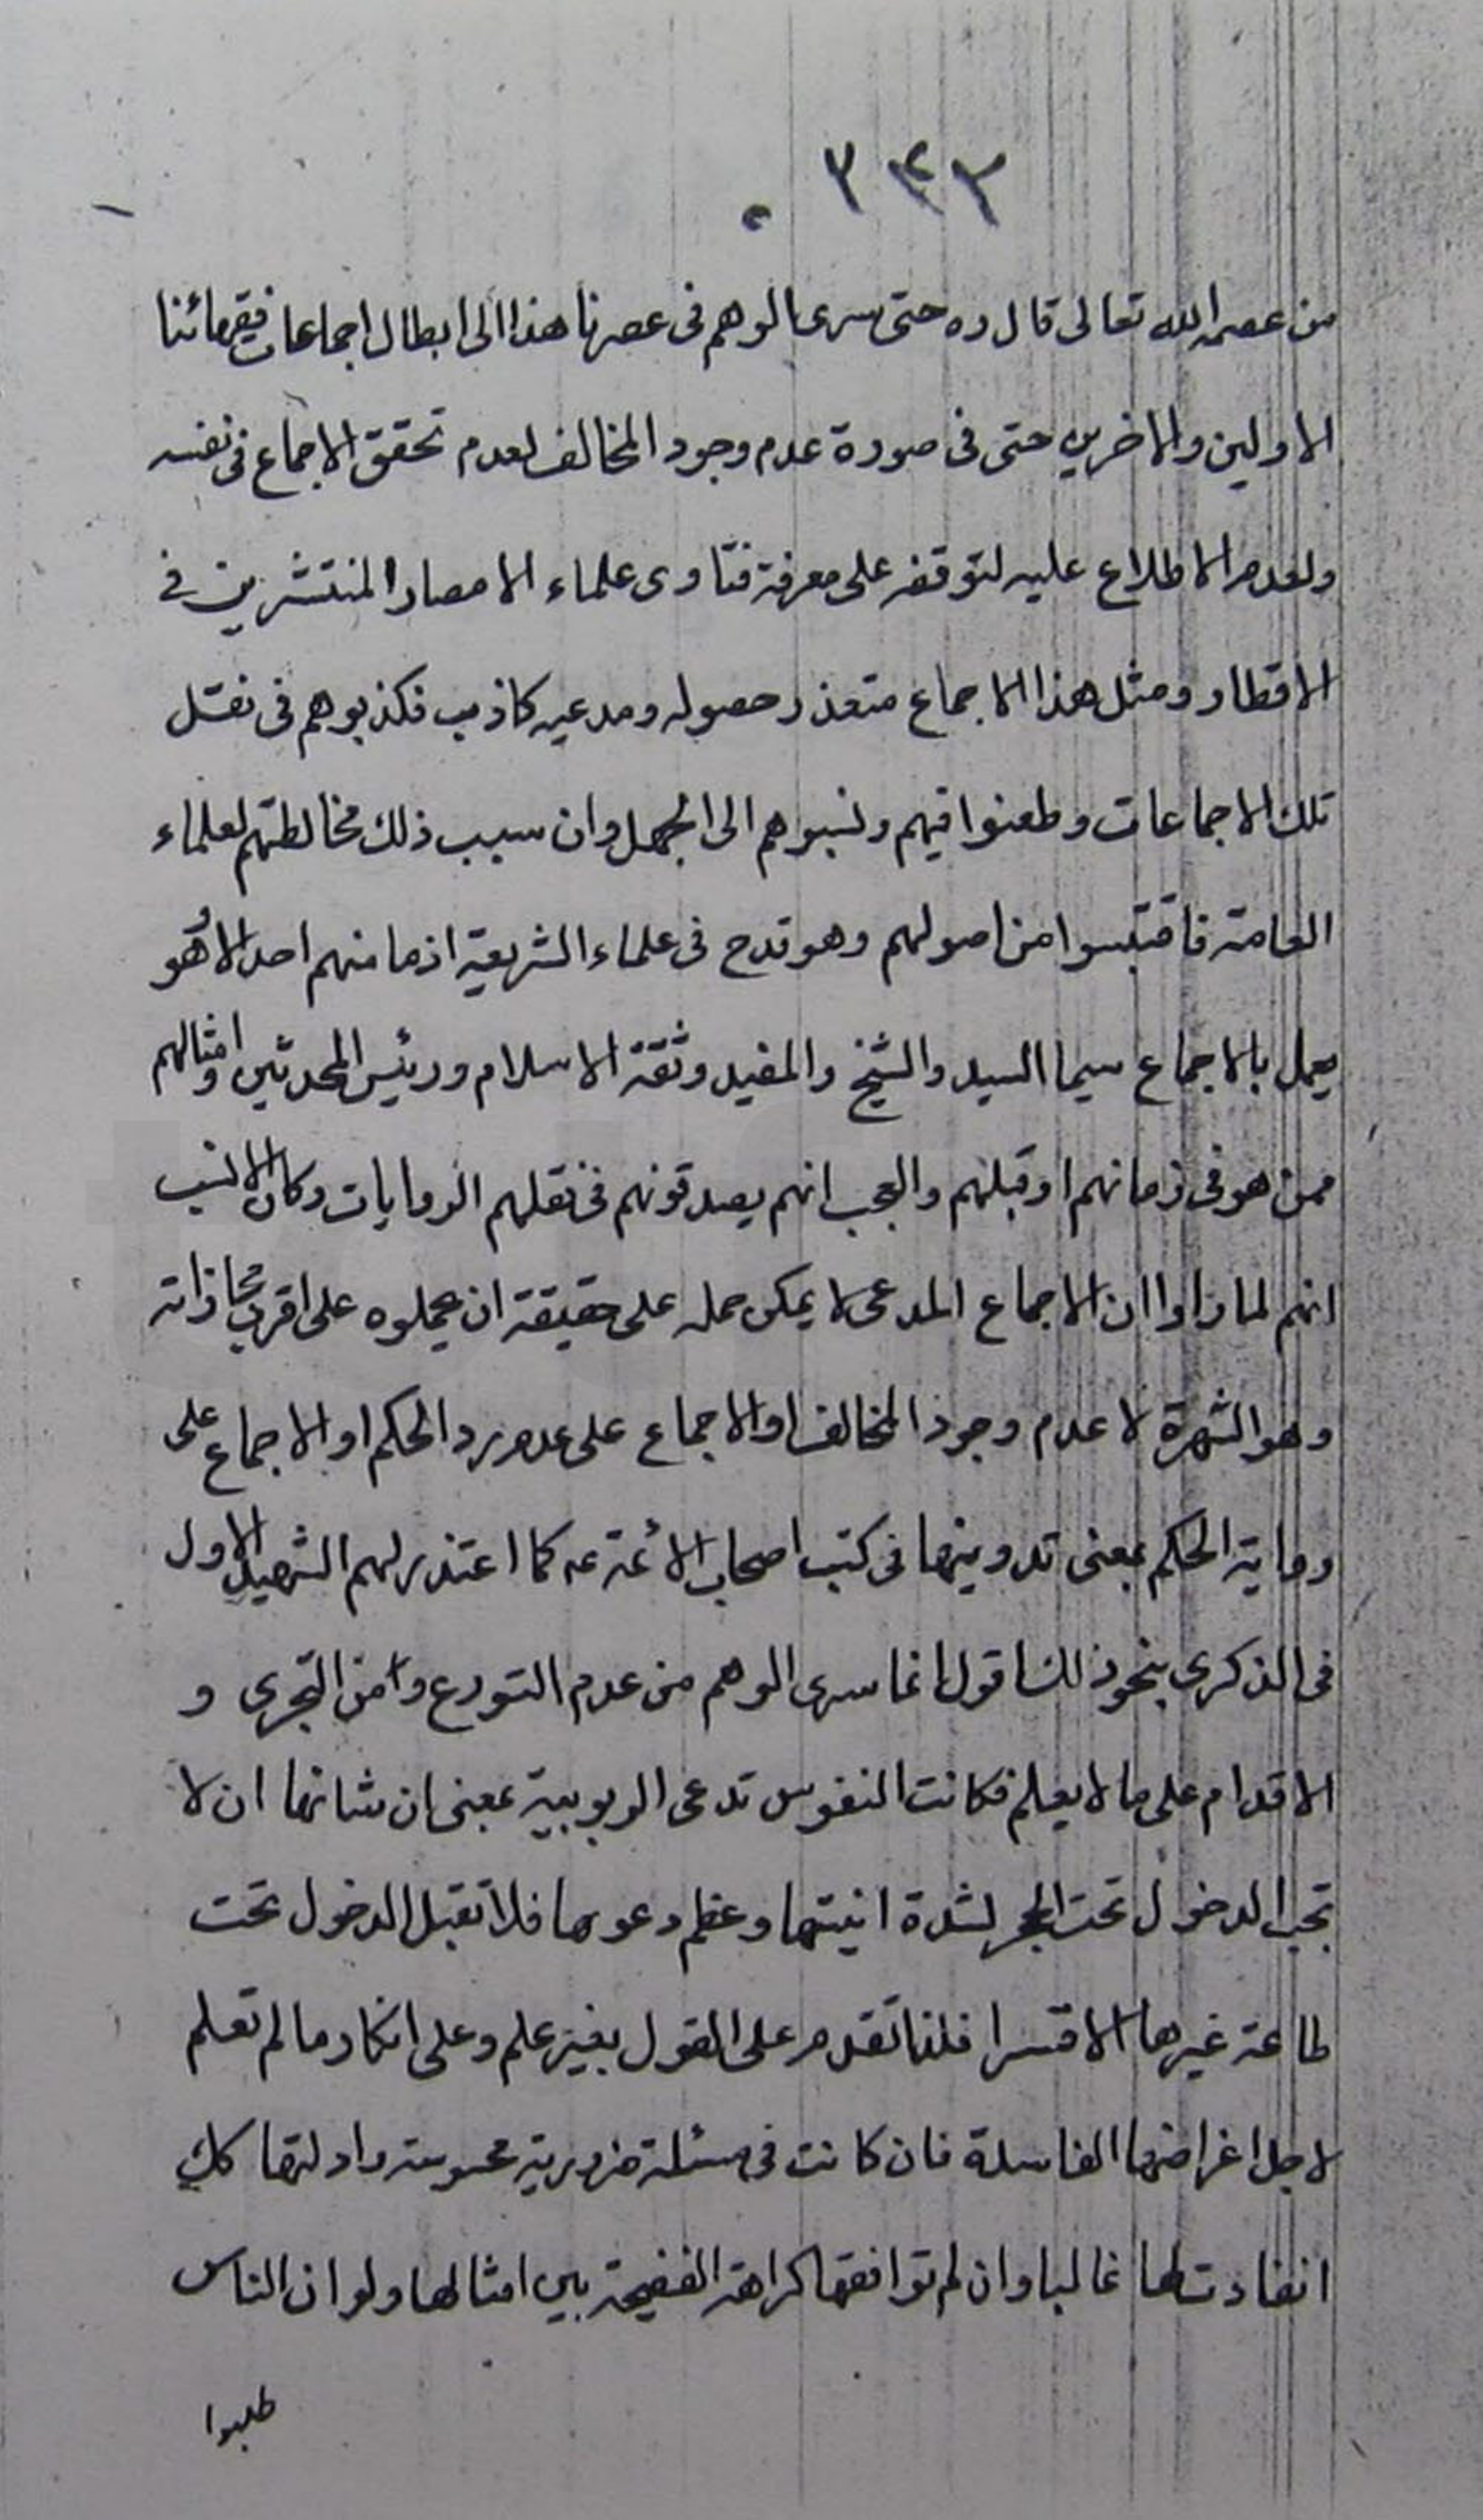 ٣٤٢
من عصمه الله تعالى قال ره حتى سرى الوهم فى عصرنا هذا الى ابطال اجماعات فقهائنا
الاولين والاخرين حتى فى صورة عدم وجود المخالف لعدم تحقق الاجماع فى نفسه
ولعدم الاطلاع عليه لتوقفه على معرفة فتاوى علماء الامصار المنتشرين فى
الاقطار ومثل هذا الاجماع متعذر حصوله ومدعيه كاذب فكذبوهم فى نقل
تلك الاجماعات وطعنوا فيهم ونسبوهم الى الجهل وان سبب ذلك مخالطتهم لعلماء
العامة فاقتبسوا من اصولهم وهو قدح فى علماء الشريعة اذ ما منهم احد الا وهو
يعمل بالاجماع سيما السيد والشيخ والمفيد وثقة الاسلام ورئيس المحدثين وامثالهم
ممن هو فى زمانهم او قبلهم والعجب انهم يصدقونهم فى نقلهم الروايات وكان الانسب
انهم لما راوا ان الاجماع المدعى لا يمكن حمله على حقيقة ان يحملوه على اقرب مجازاته
وهو الشهرة لا عدم وجود المخالف او الاجماع على عدم رد الحكم او الاجماع على
رواية الحكم بمعنى تدوينها فى كتب اصحاب الائمة عه كما اعتذر لهم الشهيد الاول
فى الذكرى بنحو ذلك اقول انما سرى الوهم من عدم التورع وامن التجرى و
الاقدام على ما لا يعلم فكانت النفوس تدعى الربوبية بمعنى ان شانها ان لا
تحب الدخول تحت الحجر لشدة انيتها وعظم دعوها فلا تقبل الدخول تحت
طاعة غيرها الا قسرا فلذا تقدم على القول بغير علم وعلى انكار ما لم تعلم
لاجل اغراضها الفاسدة فان كانت فى مسئلة ضرورية محسوسة وادلتها كك
انقادت لها غالبا وان لم توافقها كراهة الفضيحة بين امثالها ولو ان الناس
طلبوا